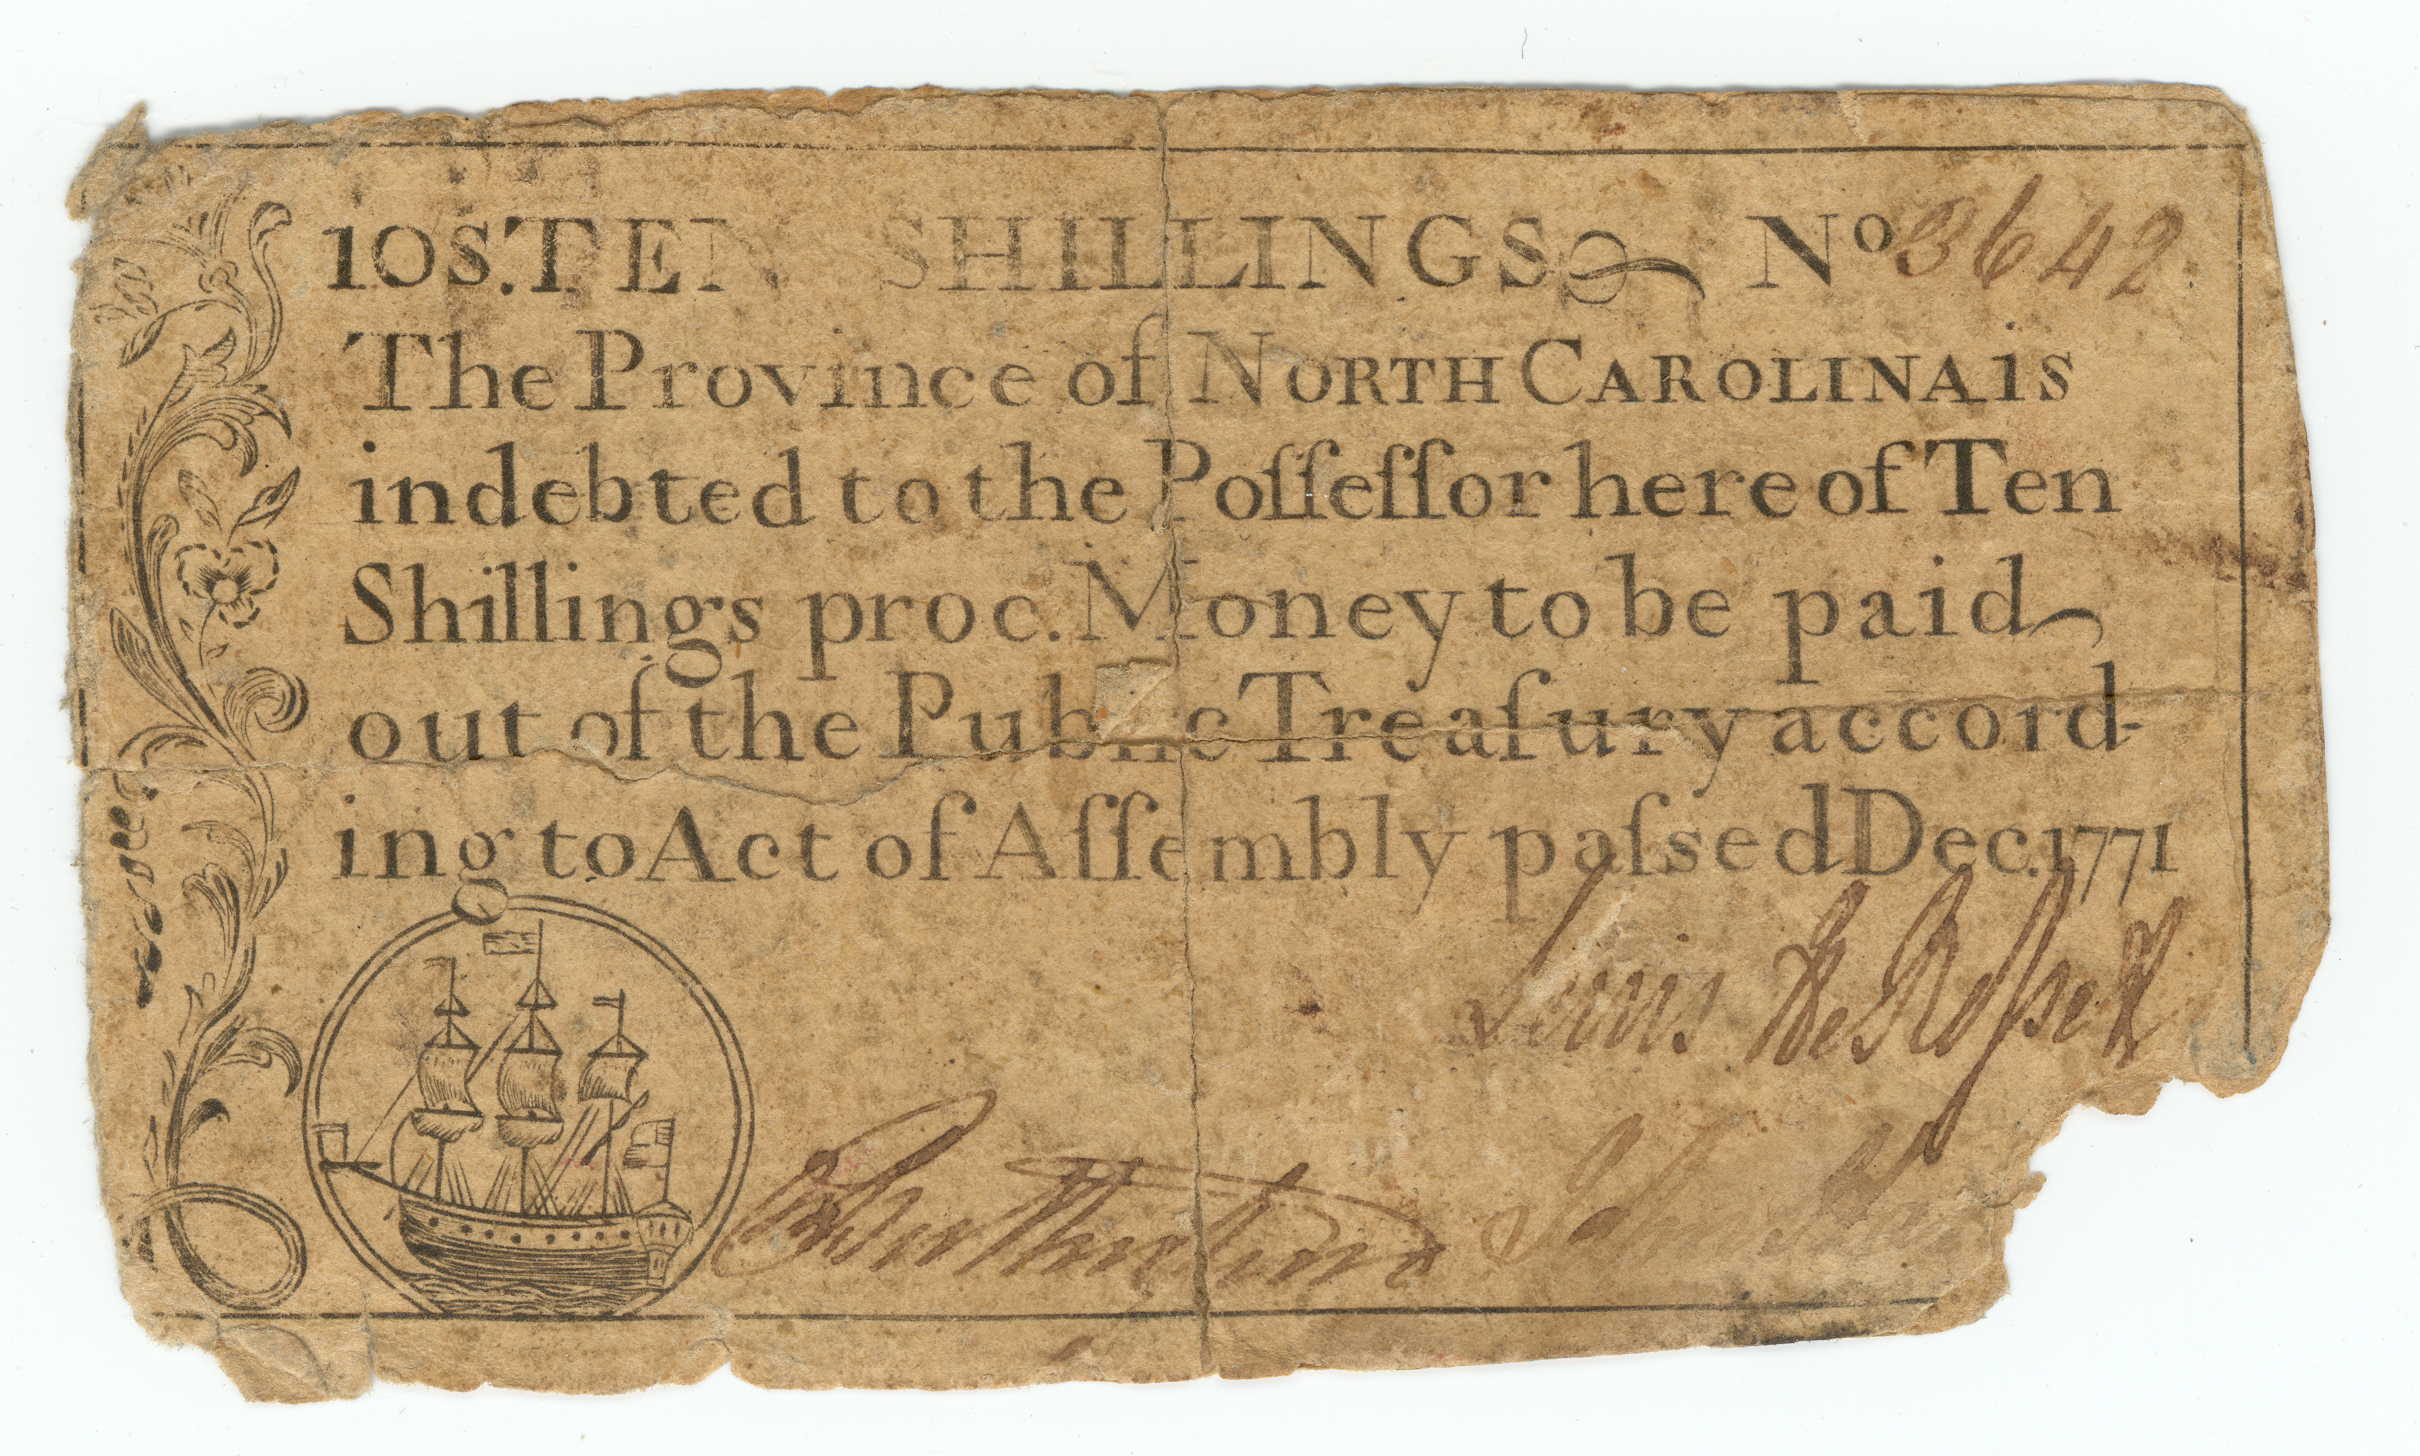 10S. TEN SHILLINGS No 3642
The Province of NORTH CAROLINA is
indebted to the Poſſeſſor here of Ten
Shillings proc. Money to be paid
out of the Public Treaſury accord-
ing to Act of Aſſembly paſsed Dec. 1771
Lewis DeRoſset
John